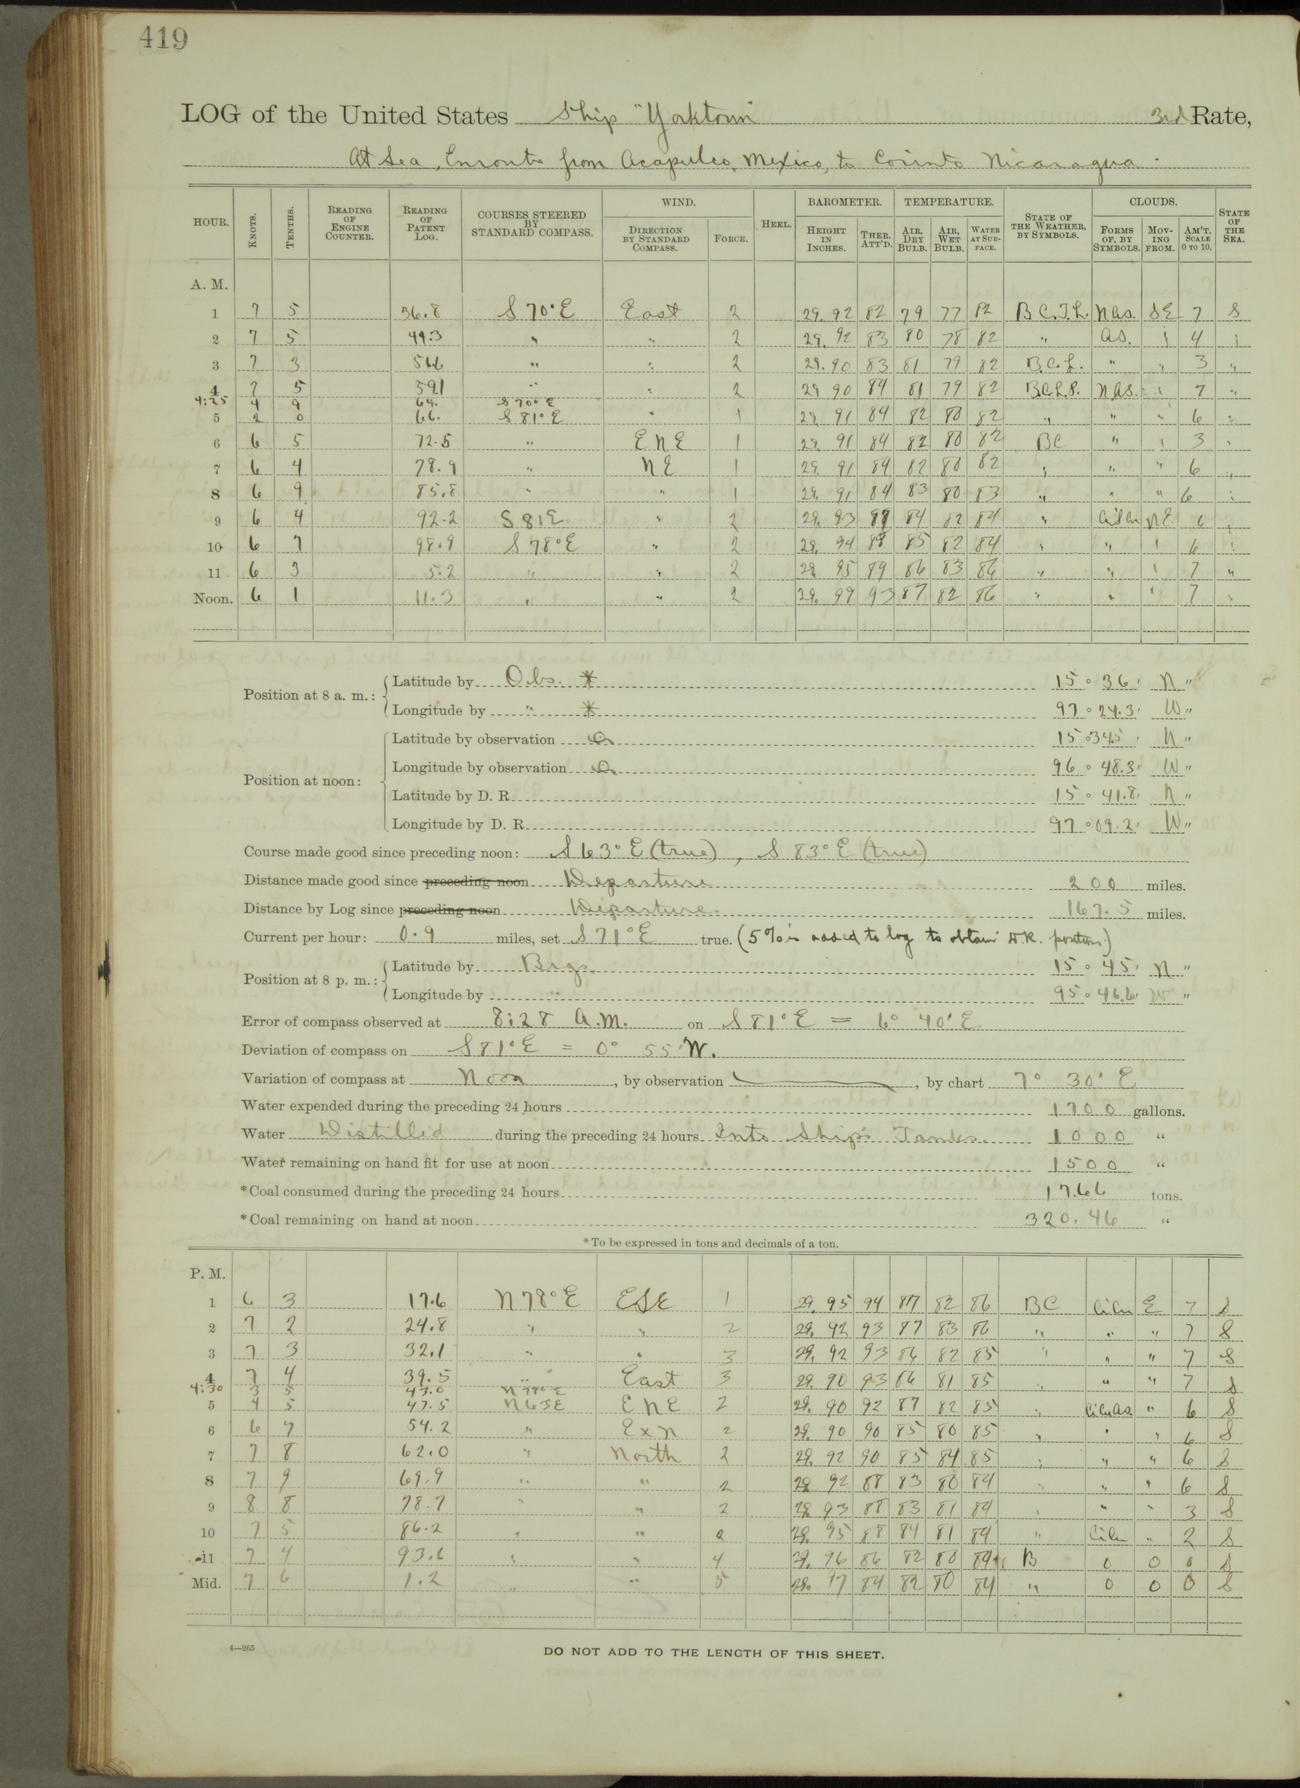 419
LOG of the United States Ship "Yorktown" 3rd Rate,
At Sea, Enroute from Acapulco, Mexico, to Corinto Nicaragua.
HOUR. KNOTS. TENTHS. READING OF ENGINE COUNTER. READING OF PATENT LOG. COURSES STEERED BY STANDARD COMPASS. WIND. DIRECTION BY STANDARD COMPASS. FORCE. HEEL. BAROMETER. HEIGHT IN INCHES. THER. ATT'D. TEMPERATURE. AIR, DRY BULB. AIR, WET BULB. WATER AT SURFACE. STATE OF THE WEATHER, BY SYMBOLS. CLOUDS. FORMS OF, BY SYMBOLS. MOVING FROM. AM'T. SCALE 0 TO 10. STATE OF THE SEA.
A. M.
1 7 5 36.8 S 70° E East 2 29.92 82 79 77 82 B.C.T.L. Nas. SE 7 S
2 7 5 44.3 " " 2 29.92 83 80 78 82 " as. " 4 "
3 7 3 51.6 " " 2 29.90 83 81 79 82 B.C.L. " " 3 "
4 7 5 59.1 " " 2 29.90 84 81 79 82 B.C.L.P. Nas. " 7 "
4:25 4 9 64. S 70° E
5 2 0 66. S 81° E " 1 29.91 84 82 80 82 " " " 6 "
6 6 5 72.5 " ENE 1 29.91 84 82 80 82 BC " " 3 "
7 6 4 78.9 " NE 1 29.91 84 82 80 82 " " " 6 "
8 6 9 85.8 " " 1 29.91 84 83 80 83 " " " 6 "
9 6 4 92.2 S 81 E " 2 29.93 88 84 82 84 " NE 6 "
10 6 7 98.9 S 78° E " 2 29.94 88 85 82 84 " " " 6 "
11 6 3 5.2 " " 2 29.95 89 86 83 86 " " " 7 "
Noon. 6 1 11.3 " " 2 29.99 93 87 82 86 " " " 7 "
Position at 8 a. m.: Latitude by Obs. * 15° 36' N "
Longitude by " * 97° 24.3' W "
Position at noon: Latitude by observation 15° 34.5' N "
Longitude by observation 96° 48.3' W "
Latitude by D. R. 15° 41.8' N "
Longitude by D. R. 97° 09.2' W "
Course made good since preceding noon: S 63° E (true), S 83° E (true)
Distance made good since preceding noon Departure 200 miles.
Distance by Log since preceding noon Departure. 167.5 miles.
Current per hour: 0.9 miles, set S 71° E true. (5% is added to log to obtain D.R. position)
Position at 8 p. m.: Latitude by Brgs. 15° 45' N "
Longitude by " 95° 46.6' W "
Error of compass observed at 8:28 A.M. on S 81° E = 6° 40' E.
Deviation of compass on S 81° E = 0° 55' W.
Variation of compass at Noon, by observation , by chart 7° 30' E
Water expended during the preceding 24 hours 1700 gallons.
Water Distilled during the preceding 24 hours Into Ship's Tanks. 1000 "
Water remaining on hand fit for use at noon 1500 "
*Coal consumed during the preceding 24 hours 17.66 tons.
*Coal remaining on hand at noon 320.46 "
*To be expressed in tons and decimals of a ton.
P. M.
1 6 3 17.6 N 78° E ESE 1 29.95 94 87 82 86 BC CiCu E 7 S
2 7 2 24.8 " " 2 29.92 93 87 83 86 " " " 7 S
3 7 3 32.1 " " 3 29.92 93 86 82 85 " " " 7 S
4 7 4 39.5 " East 3 29.90 93 86 81 85 " " " 7 S
4:30 3 5 43.0 N 78° E
5 4 5 47.5 N 65 E ENE 2 29.90 92 87 82 85 " CiCuas " 6 S
6 6 7 54.2 " ExN 2 29.90 90 85 80 85 " " " 6 S
7 7 8 62.0 " North 2 29.92 90 85 84 85 " " " 6 S
8 7 9 69.9 " " 2 29.92 88 83 80 84 " " " 6 S
9 8 8 78.7 " " 2 29.93 88 83 81 84 " " " 3 S
10 7 5 86.2 " " 2 29.95 88 84 81 84 " CiCu " 2 S
11 7 4 93.6 " " 4 29.96 86 82 80 84 B 0 0 0 S
Mid. 7 6 1.2 " " 5 29.97 84 82 80 84 " 0 0 0 S
4—265
DO NOT ADD TO THE LENGTH OF THIS SHEET.